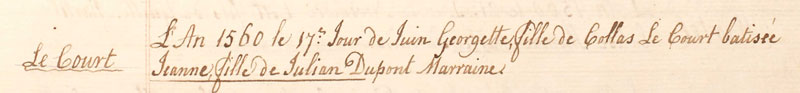 Le Court
L'An 1560 le 17.e Jour de Juin Georgette, fille de Collas Le Court batisée
Jeanne, fille de Julian Dupont Marraine.